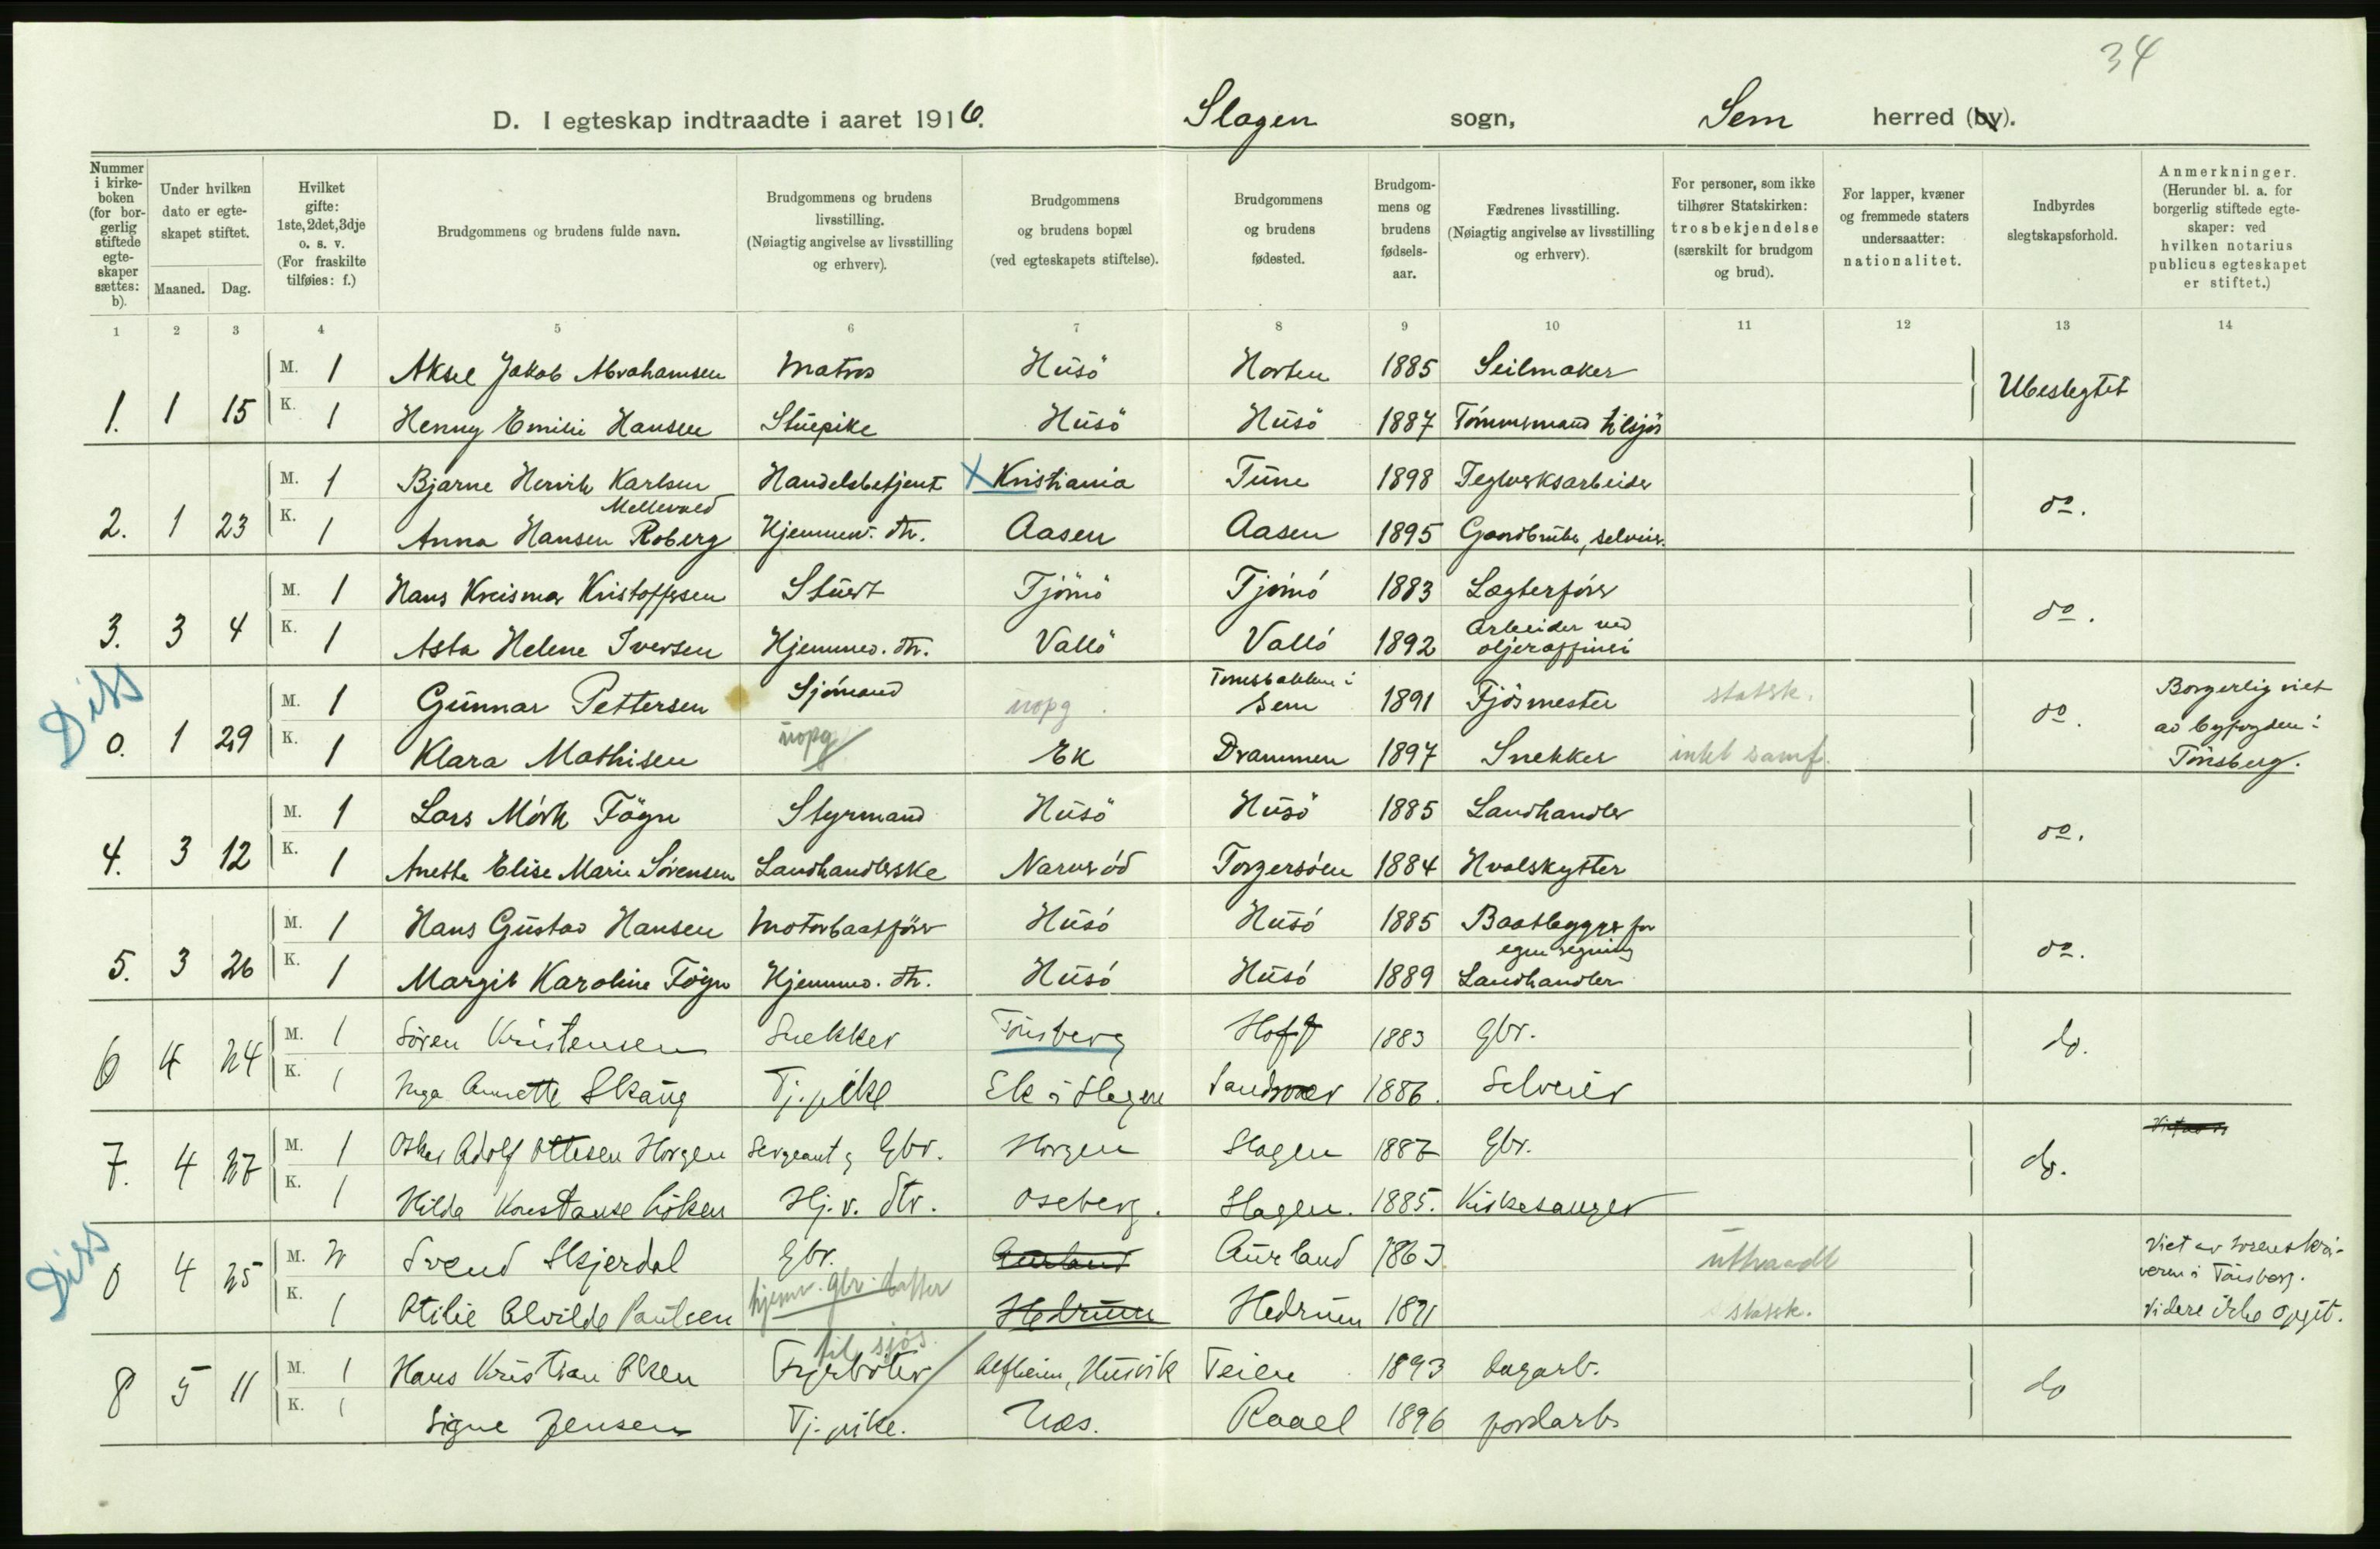 34
D. I egteskap indtraadte i aaret 1916. Slagen sogn, Sem herred (by).
Nummer i kirkeboken (for borgerlig stiftede egteskaper sættes: b).
Under hvilken dato er egteskapet stiftet.
Maaned. Dag.
Hvilket gifte: 1ste, 2det, 3dje o. s. v. (For fraskilte tilføies: f.)
Brudgommens og brudens fulde navn.
Brudgommens og brudens livsstilling. (Nøiagtig angivelse av livsstilling og erhverv).
Brudgommens og brudens bopæl (ved egteskapets stiftelse).
Brudgommens og brudens fødested.
Brudgommens og brudens fødselsaar.
Fædrenes livsstilling. (Nøiagtig angivelse av livsstilling og erhverv).
For personer, som ikke tilhører Statskirken: trosbekjendelse (særskilt for brudgom og brud).
For lapper, kvæner og fremmede staters undersaatter: nationalitet.
Indbyrdes slegtskapsforhold.
Anmerkninger. (Herunder bl. a. for borgerlig stiftede egteskaper: ved hvilken notarius publicus egteskapet er stiftet.)
1 2 3 4 5 6 7 8 9 10 11 12 13 14
M. 1 Aksel Jakob Abrahamsen Matros Husö Horten 1885 Seilmaker Ubeslegtet
1. 1 15 K. 1 Henny Emilie Hansen Stuepike Husö Husö 1887 Tömmermand tilsjös
M. 1 Bjarne Henrik Karlsen Handelsbetjent Kristiania Tune 1898 Teglverksarbeider do.
Mellevold
2. 1 23 K. 1 Anna Hansen Roberg Hjemmev. dtr. Aasen Aasen 1895 Gaardbruker, selveier.
M. 1 Hans Kreismar Kristoffersen Stuert Tjömö Tjömö 1883 Lægterförer do.
3. 3 4 K. 1 Asta Helene Iversen Hjemmev. dtr. Vallö Vallö 1892 arbeider ved oljeraffineri
Diss
M. 1 Gunnar Pettersen Sjömand uopg. Sem 1891 Fjösmester statsk. do. Borgerlig viet
0. 1 29 K. 1 Klara Mathisen uopg Ek Drammen 1897 Snekker intet samf. av byfogden i Tönsberg.
M. 1 Lars Mörk Fögn Styrmand Husö Husö 1885 Landhandler do.
4. 3 12 K. 1 Anette Elise Marie Sörensen Landhandlerske Narveröd Torgersöen 1884 Hvalskytter
M. 1 Hans Gustav Hansen Motorbaatförer Husö Husö 1885 Baatbygger for egen regning do.
5. 3 26 K. 1 Margit Karoline Fögn Hjemmev. dtr. Husö Husö 1889 Landhandler
M. 1 Sören Kristensen Snekker Tönsberg Hoff 1883 Gbr. do.
6 4 24 K. 1 Inga Annette Skaug Tj.pike Ek i Slagen Sandsvær 1886. Selveier
M. 1 Oskar Adolf Ottesen Horgen Sergeant og Gbr. Horgen Slagen 1887 Gbr. do.
7. 4 27 K. 1 Hilda Konstanse Löken Hj.v. dtr. Oseberg. Slagen. 1885. Kirkesanger
Diss
M. 2 Svend Skjerdal Gbr. Aurland Aurland 1863 uttraadt Viet av sorenskri-
0 4 25 K. 1 Otilie Alvilde Paulsen hjemv. gbr. datter Hedrum Hedrum 1871 statsk. veren i Tönsberg. Videre ikke opgit.
til sjös.
M. 1 Hans Kristian Olsen Fyrböter Husvik Teien 1893 dagarb. do
8 5 11 K. 1 Signe Jensen Tj.pike. Næs. Raael 1896 jordarb.